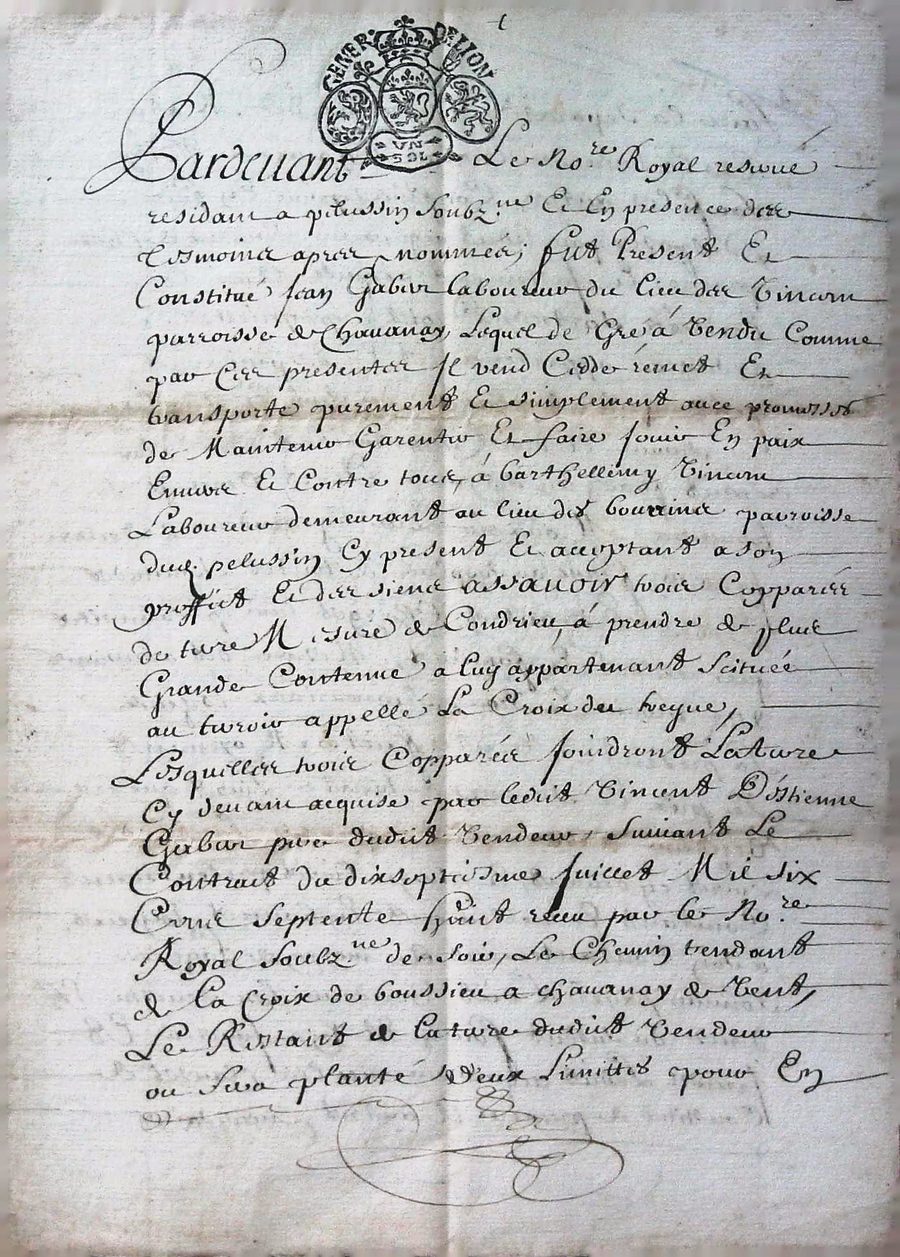 GENER. DE LION
VN
SOL
Pardevant Le No.re Royal reservé
residant a pelussin soubz.ne Et En presence des
tesmoins apres nommés, fut Present Et
Constitué Jean Gabert laboureur du lieu des Vincent
parroisse de Chavanay, Lequel de Gré à Vendu Comme
par Ces presentes Il vend Cedde remet Et
transporte purement Et simplement avec promesse
de Maintenir Garentir Et faire Jouir En paix
Envers Et Contre tous, à barthellemy Vincent
Laboureur demeurant au lieu des bourrins parroisse
dud. pelussin Cy present Et acceptant a son
proffict Et des siens assavoir trois Copparées
de terre Mesure de Condrieu, à prendre de plus
Grande Contenue a luy appartenant scituée
au terroir appellé La Croix du
Lesquelles trois Copparées Joindront La terre
Cy devant acquise par ledit Vincent D'Estienne
Gabert pere dudit Vendeur, suivant Le
Contrait du dixseptiesme Juillet Mil six
Cents septente huit receu par le No.re
Royal soubz.ne de soir, Le Chemin tendant
de la Croix de boussieu a chavanay de Vent,
Le Restant de la terre dudit Vendeur
ou sera planté deux Limittes pour En